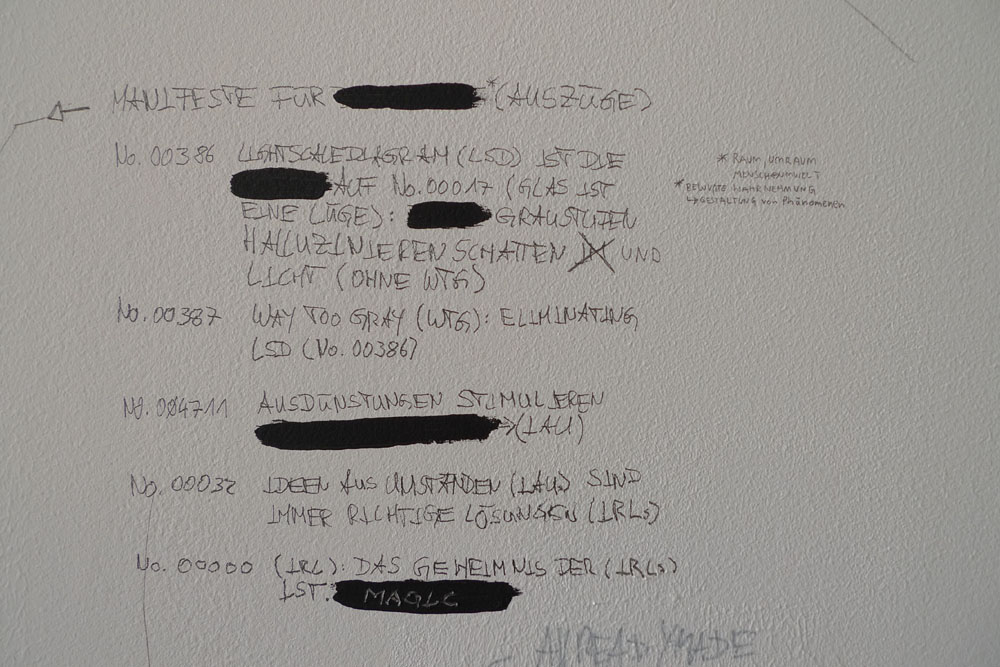 MANIFESTE FÜR *(AUSZÜGE)
No. 00386 LIGHTSCALEDIAGRAM (LSD) IST DIE
AUF No. 00017 (GLAS IST
EINE LÜGE): GRAUSTUFEN
HALLUZINIEREN SCHATTEN UND
LICHT (OHNE WTG)
* RAUM, UMRAUM
MENSCHENUMWELT
* BEWUSTE WAHRNEHMUNG
↳ GESTALTUNG von Phänomenen
No. 00387 WAY TOO GRAY (WTG): ELIMINATING
LSD (No. 00386)
No. 004711 AUSDÜNSTUNGEN STIMULIEREN
→(IAU)
No. 00032 IDEEN AUS UMSTÄNDEN (IAU) SIND
IMMER RICHTIGE LÖSUNGEN (IRLs)
No. 00000 (IRL): DAS GEHEIMNIS DER (IRLs)
IST: MAGIC
ALREADYMADE